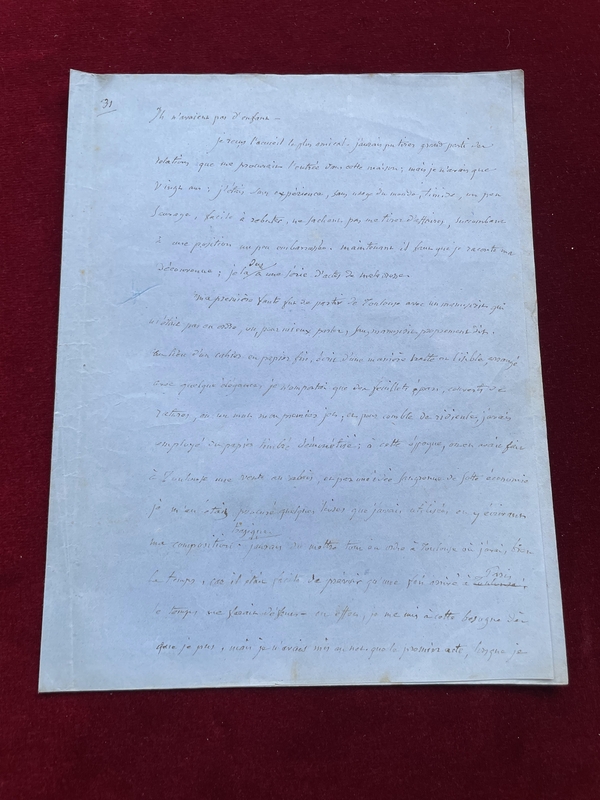 31
Ils n'avaient pas d'enfant —
je reçus l'accueil le plus amical — j'aurais pu tirer grand parti des
relations que me procurait l'entrée dans cette maison; mais je n'avais que
vingt ans: j'étais sans expérience, sans usage du monde, timide, un peu
sauvage, facile à rebuter, ne sachant pas me tirer d'affaires,
à une position un peu embarrassée. maintenant il faut que je raconte ma
déconvenue; je la dus à une série d'actes de maladresse.
ma première faute fut de partir de Toulouse avec un manuscrit qui
n'était pas en ordre, ou, pour mieux parler, sans manuscrit proprement dit:
au lieu d'un cahier en papier fin, écrit d'une manière nette et lisible, arrangé
avec quelque élégance, je n'emportai que des feuillets épars, couverts de
ratures, en un mot mon premier jet, et pour comble de ridicule, j'avais
employé du papier timbré démonétisé; à cette époque, on en avait fait
à Toulouse une vente au rabais, et par une idée de sotte économie
je m'en étais procuré quelques livres que j'avais utilisées en y écrivant
ma composition tragique. j'aurais dû mettre tout en ordre à Toulouse où j'avais bien
le temps, car il était facile de prévoir qu'une fois arrivé à Paris
le temps me ferait défaut. en effet, je me mis à cette besogne dès
que je pus; mais je n'avais mis au net que le premier acte, lorsque je